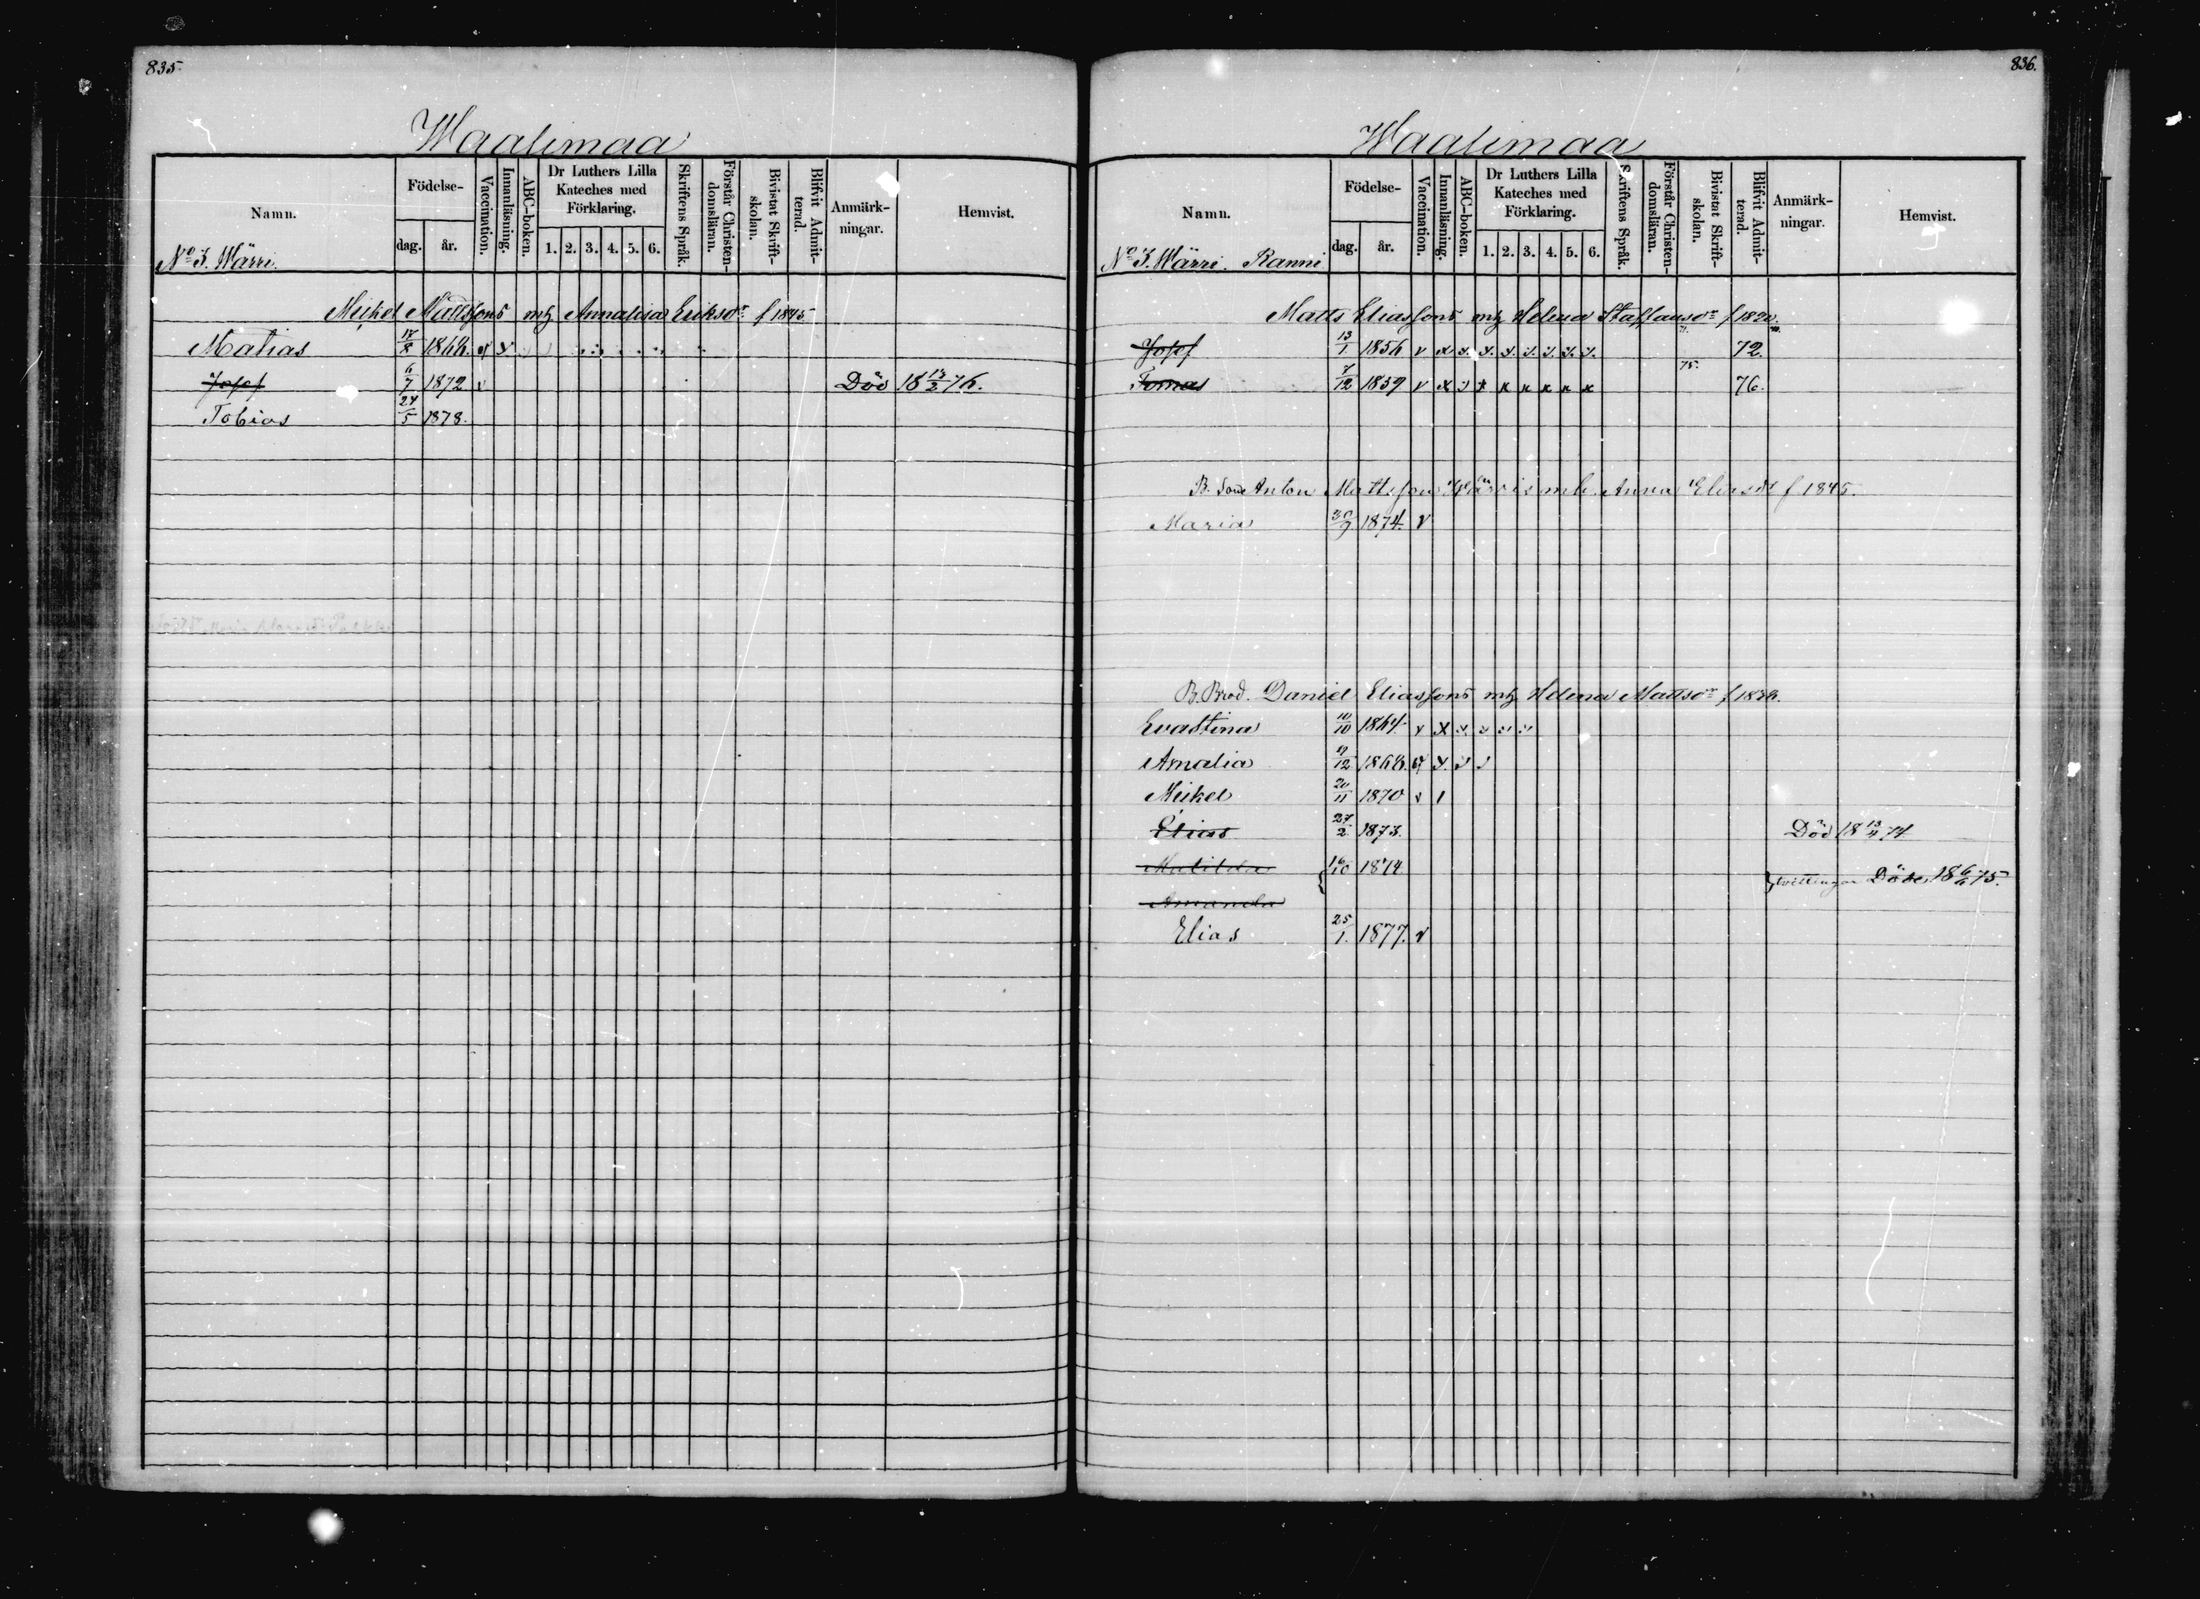 835.
Waalimaa
Namn.
Födelse-
dag.
år.
Vaccination.
Innanläsning.
ABC-boken.
Dr Luthers Lilla Kateches med Förklaring.
1. 2. 3. 4. 5. 6.
Skriftens Språk.
Förstår Christen-domsläran.
Bivistat Skrift-skolan.
Blifvit Admit-terad.
Anmärk-ningar.
Hemvist.
No 3. Wärri.
Mickel Mattssons mh Annalisa Eriksdr f 1845.
Matias 17/8 1866.
Josef 6/7 1872 v Död 18 13/2 76.
Tobias 24/5 1878.
836.
Waalimaa
Namn.
Födelse-
dag.
år.
Vaccination.
Innanläsning.
ABC-boken.
Dr Luthers Lilla Kateches med Förklaring.
1. 2. 3. 4. 5. 6.
Skriftens Språk.
Förstår Christen-domsläran.
Bivistat Skrift-skolan.
Blifvit Admit-terad.
Anmärk-ningar.
Hemvist.
No 3. Wärri. Ranni
Matts Eliassons mh Helena Staffansdr f 1820.
Josef 13/1 1856 v x 72.
Tomas 7/12 1859 v x x x x x x x 75. 76.
B. Son Anton Mattsson mh. Anna Eliasdr f 1845.
Maria 30/9 1874. v
B. Brod. Daniel Eliassons mh Helena Mattsdr f 1836.
Evastina 10/10 1864. v x
Amalia 9/12 1868.
Mickel 20/11 1870 v 1
Elias 27/2 1873. Död 18 13/11 74
Matilda 16/10 1874 tvillingar Döde 18 6/6 75.
Amanda
Elias 25/1. 1877. v